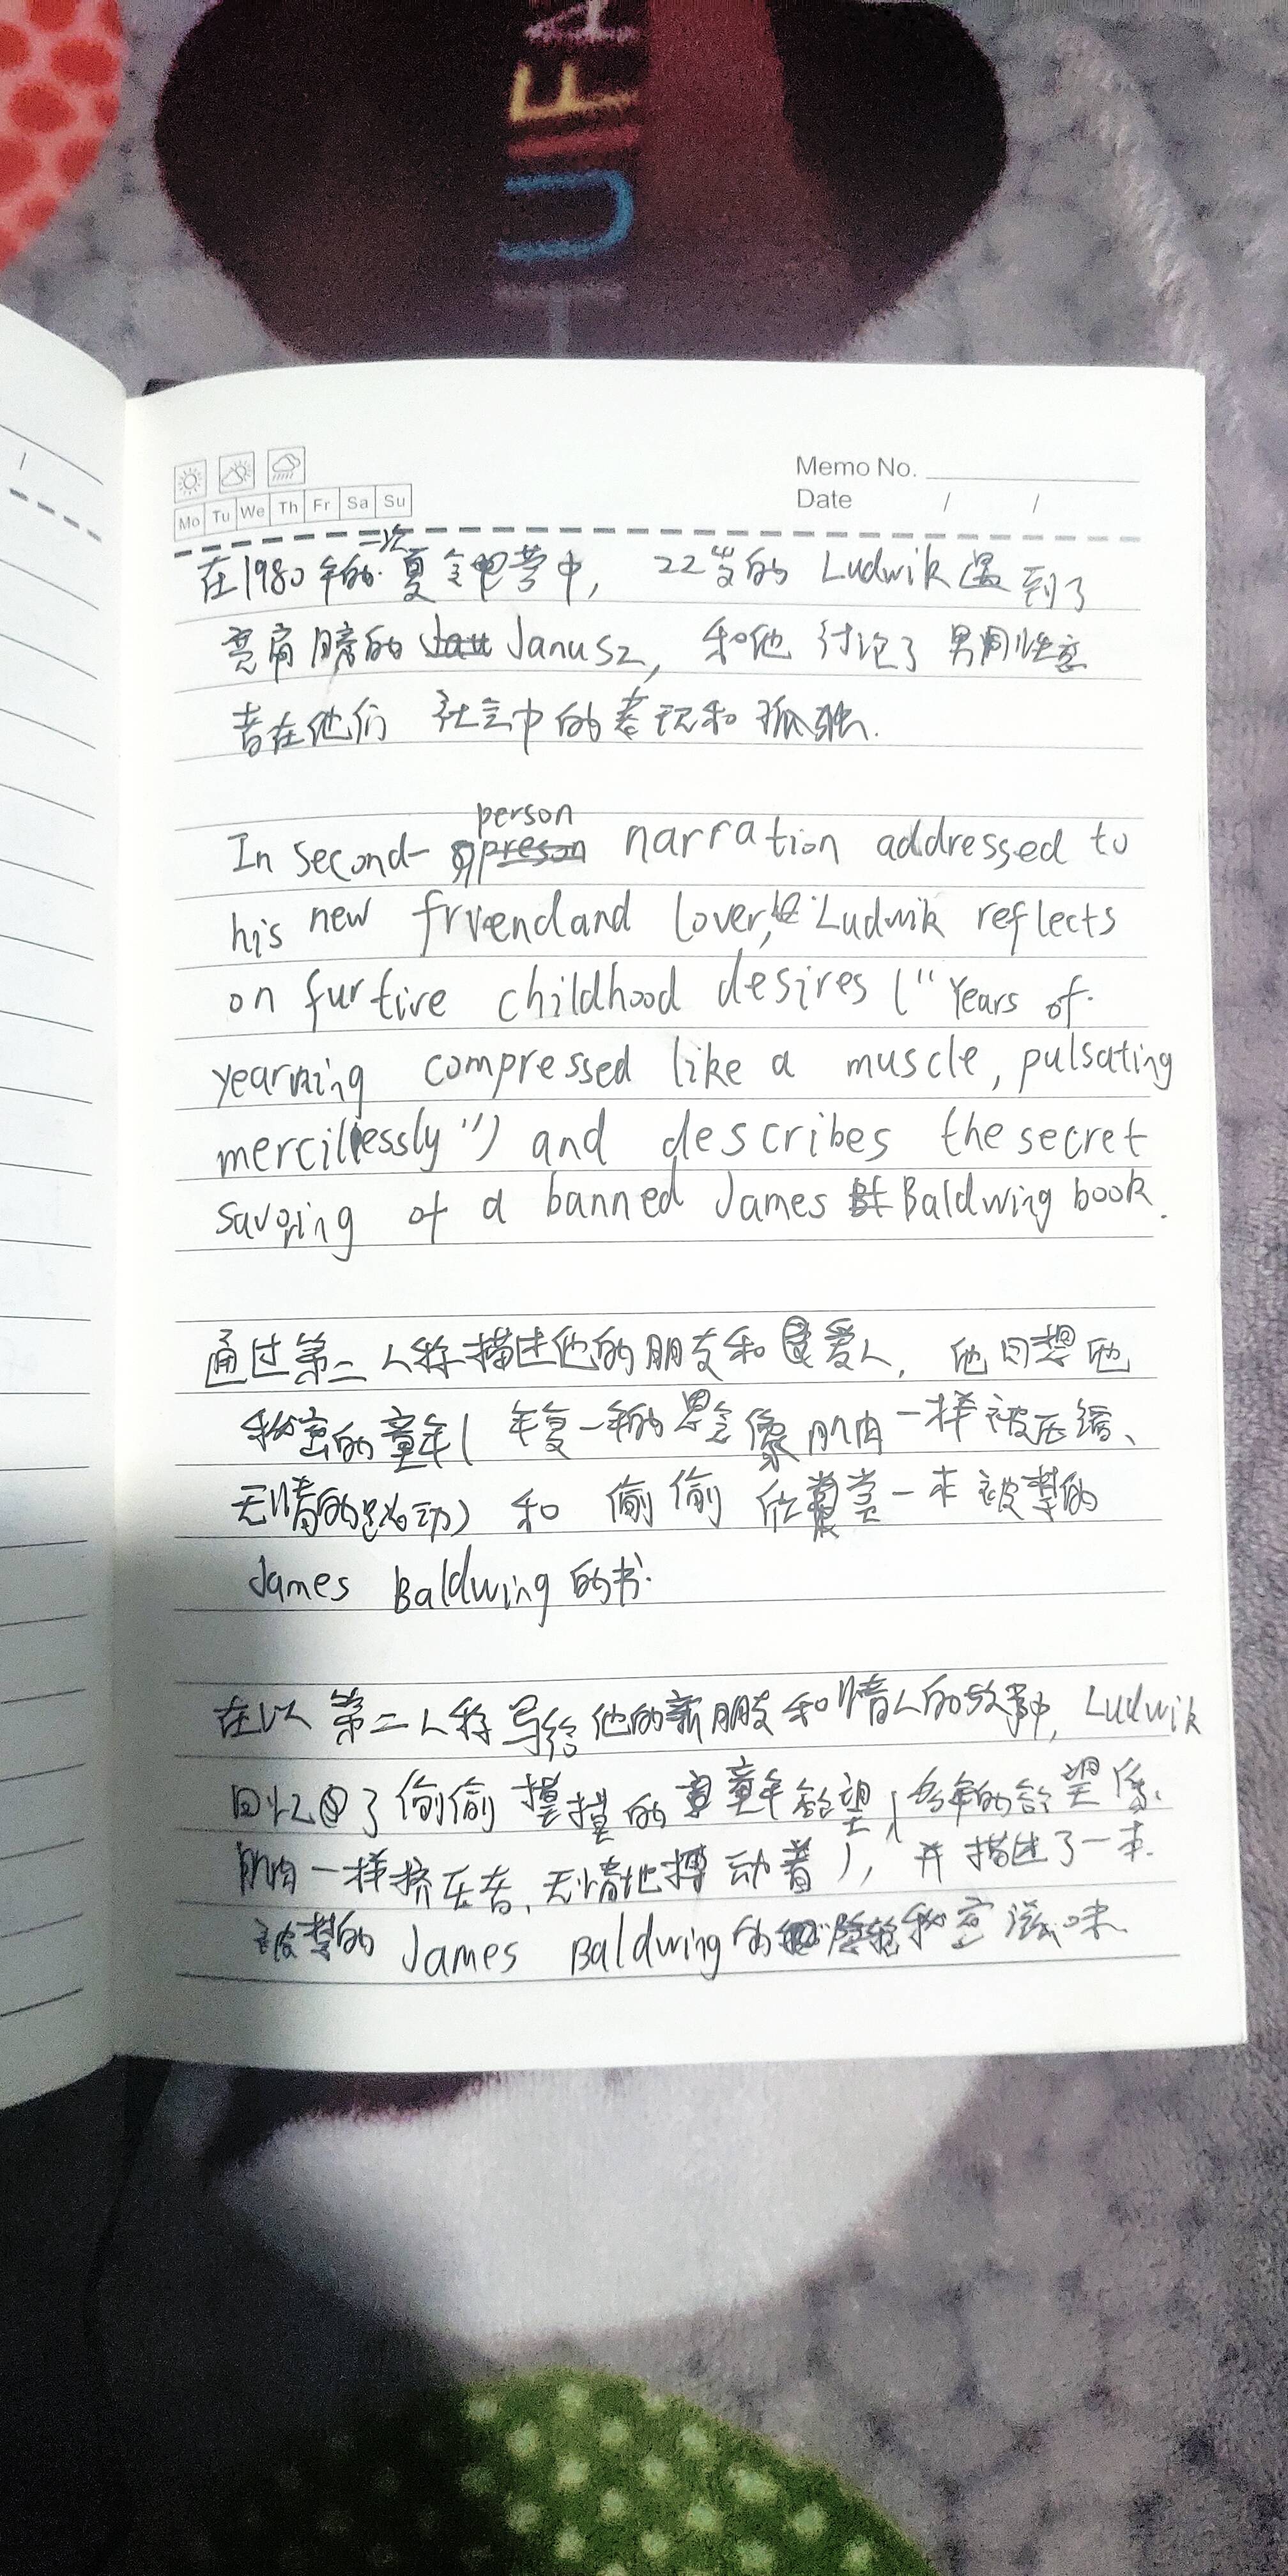 UEFA
Memo No.
Date / /
Mo Tu We Th Fr Sa Su
一次
在1980年的夏令营中, 22岁的 Ludwik 遇到了
宽肩膀的 Janusz, 和他讨论了男同性恋
者在他们社会中的表现和孤独.
person
In second- preson narration addressed to
his new friendand lover, Ludwik reflects
on furtive childhood desires ("Years of
yearning compressed like a muscle, pulsating
mercillessly") and describes the secret
savoring of a banned James Baldwing book.
通过第二人称描述他的朋友和爱人, 他回想他
秘密的童年( 年复一年的思念像肌肉一样被压缩、
无情的跳动) 和 偷偷欣赏一本被禁的
James Baldwing 的书.
在以第二人称写给他的新朋友和情人的故事中, Ludwik
回忆了偷偷摸摸的童年欲望(多年的欲望像
肌肉一样挤压着、无情地搏动着), 并描述了一本
被禁的 James Baldwing 的秘密滋味